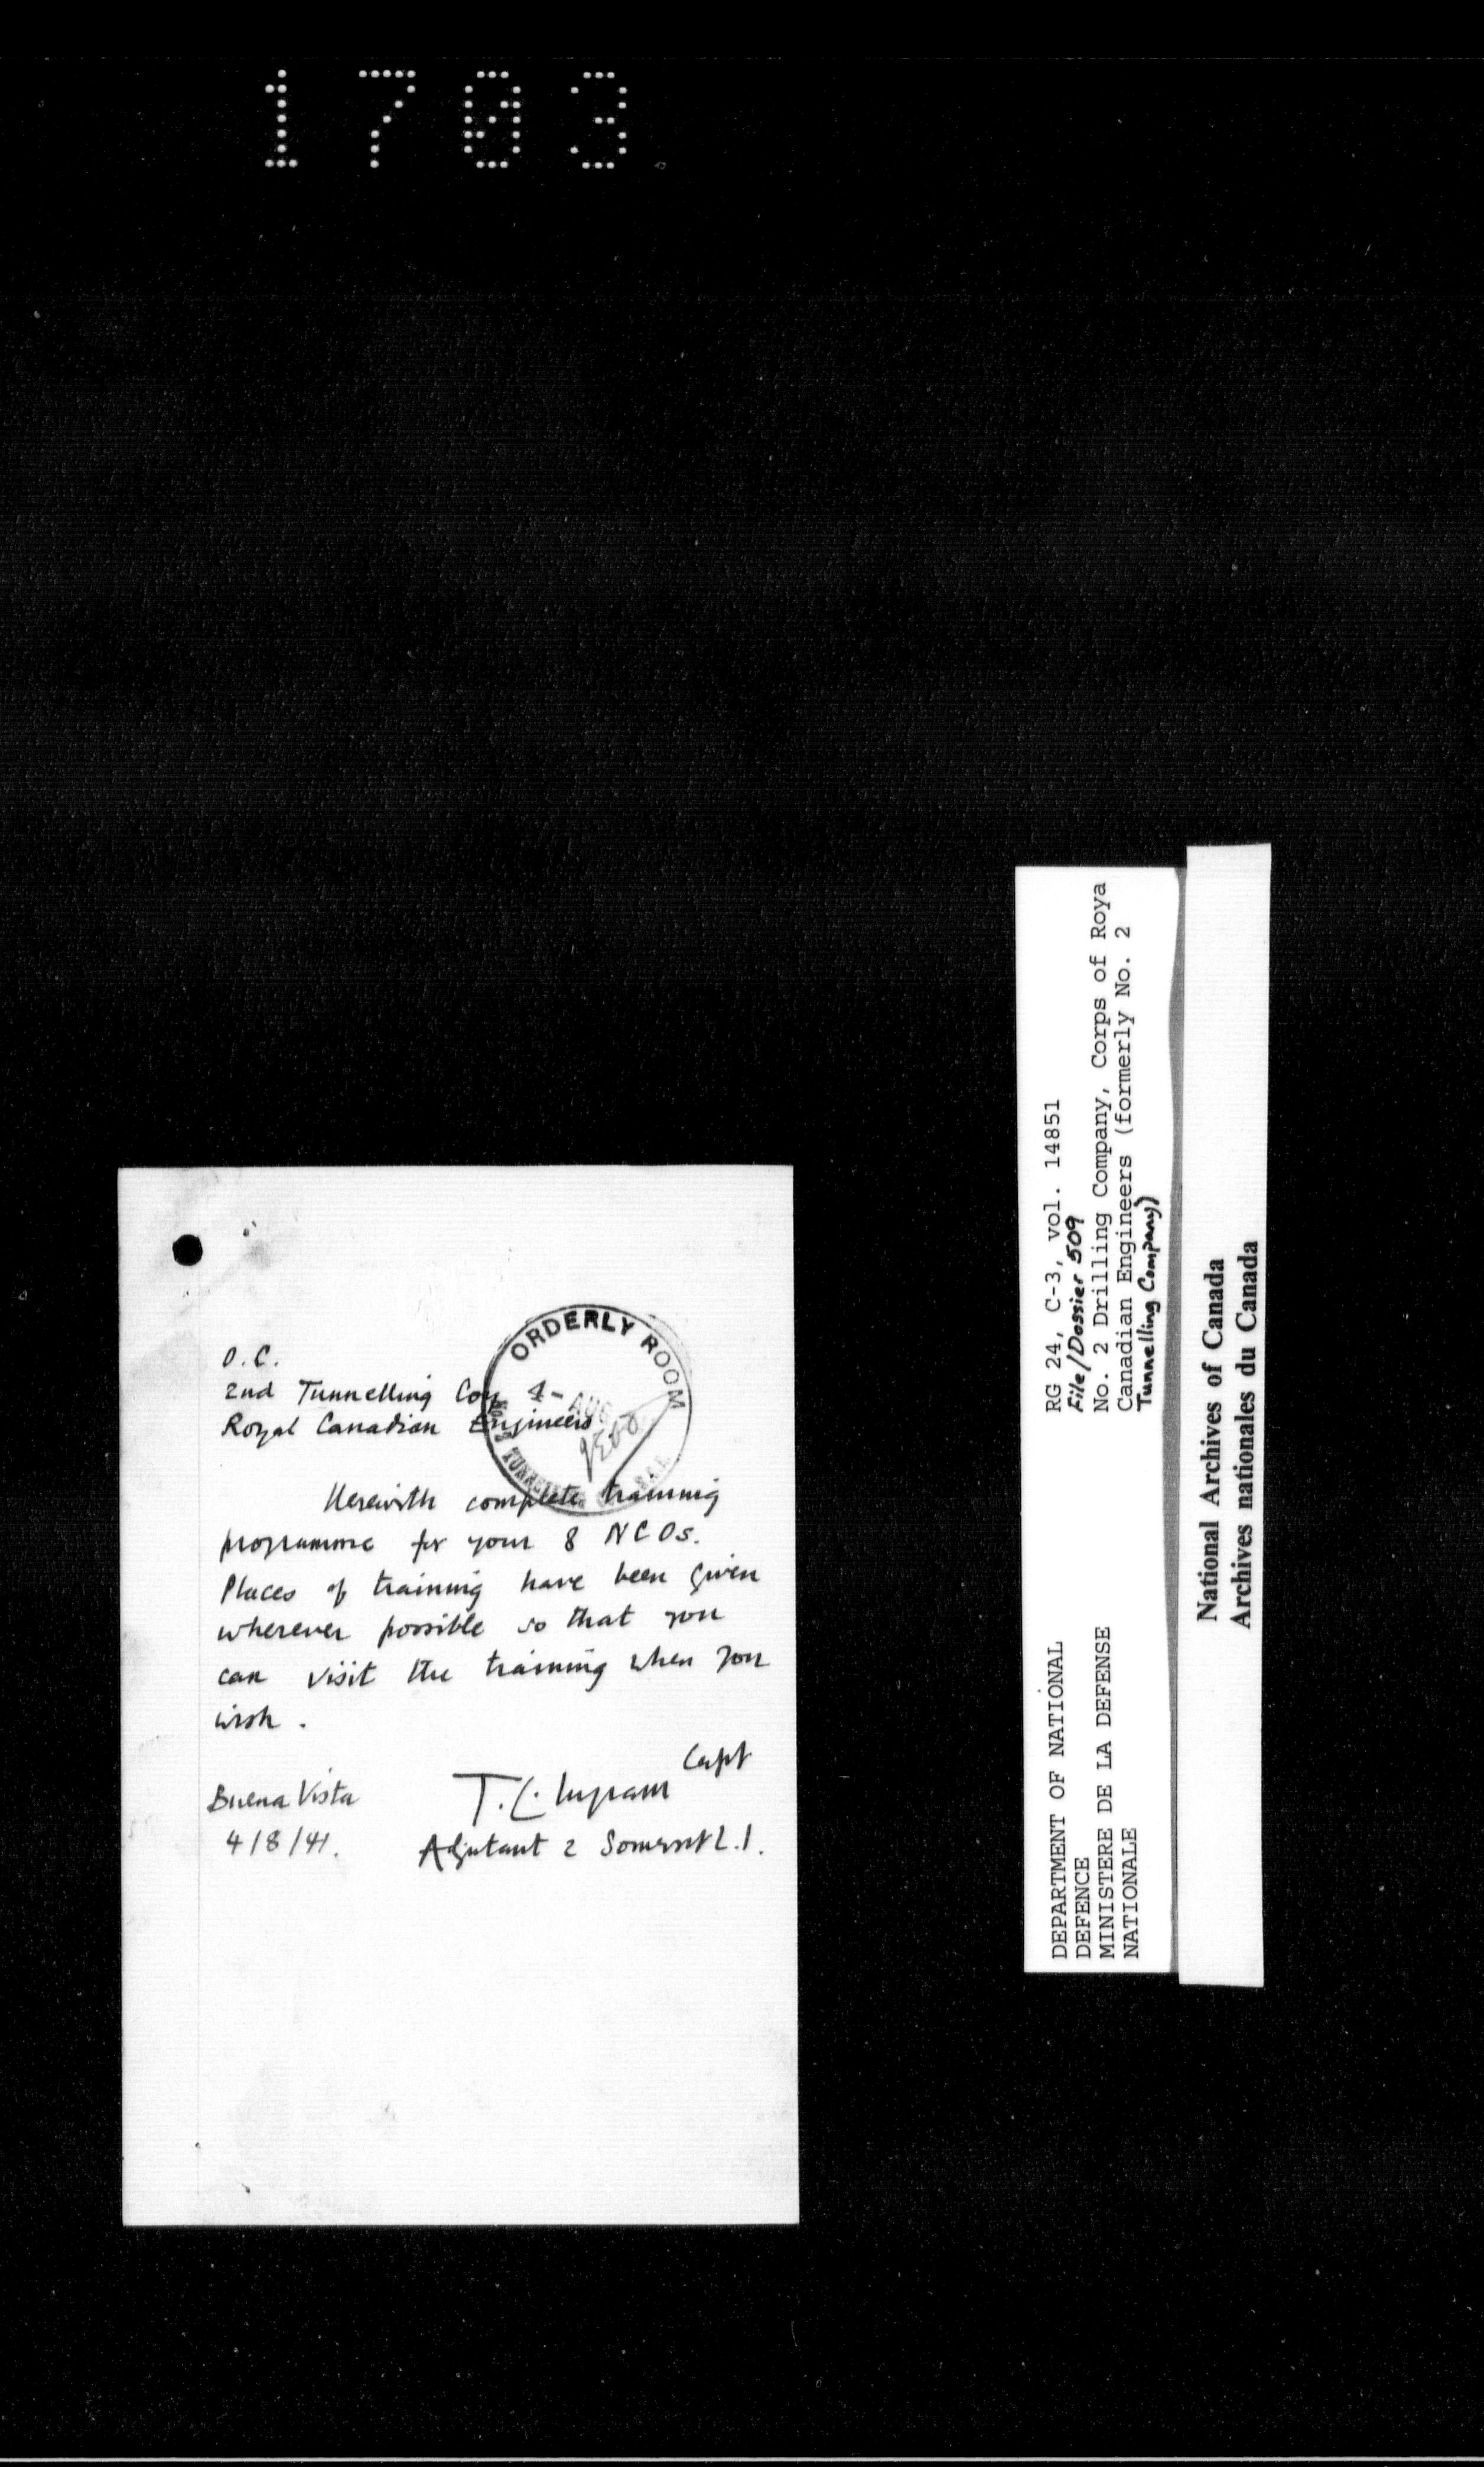 1703
O.C.
2nd Tunnelling Coy
Royal Canadian Engineers
ORDERLY ROOM
4 - AUG
Herewith complete training
programme for your 8 NCOs.
Places of training have been given
wherever possible so that you
can visit the training when you
wish.
Capt
T. C. Ingram
Buena Vista
4/8/41.
Adjutant 2 Somerset L.I.
RG 24, C-3, vol. 14851
File/Dossier 509
No. 2 Drilling Company, Corps of Roya
Canadian Engineers (formerly No. 2
Tunnelling Company)
DEPARTMENT OF NATIONAL
DEFENCE
MINISTERE DE LA DEFENSE
NATIONALE
National Archives of Canada
Archives nationales du Canada